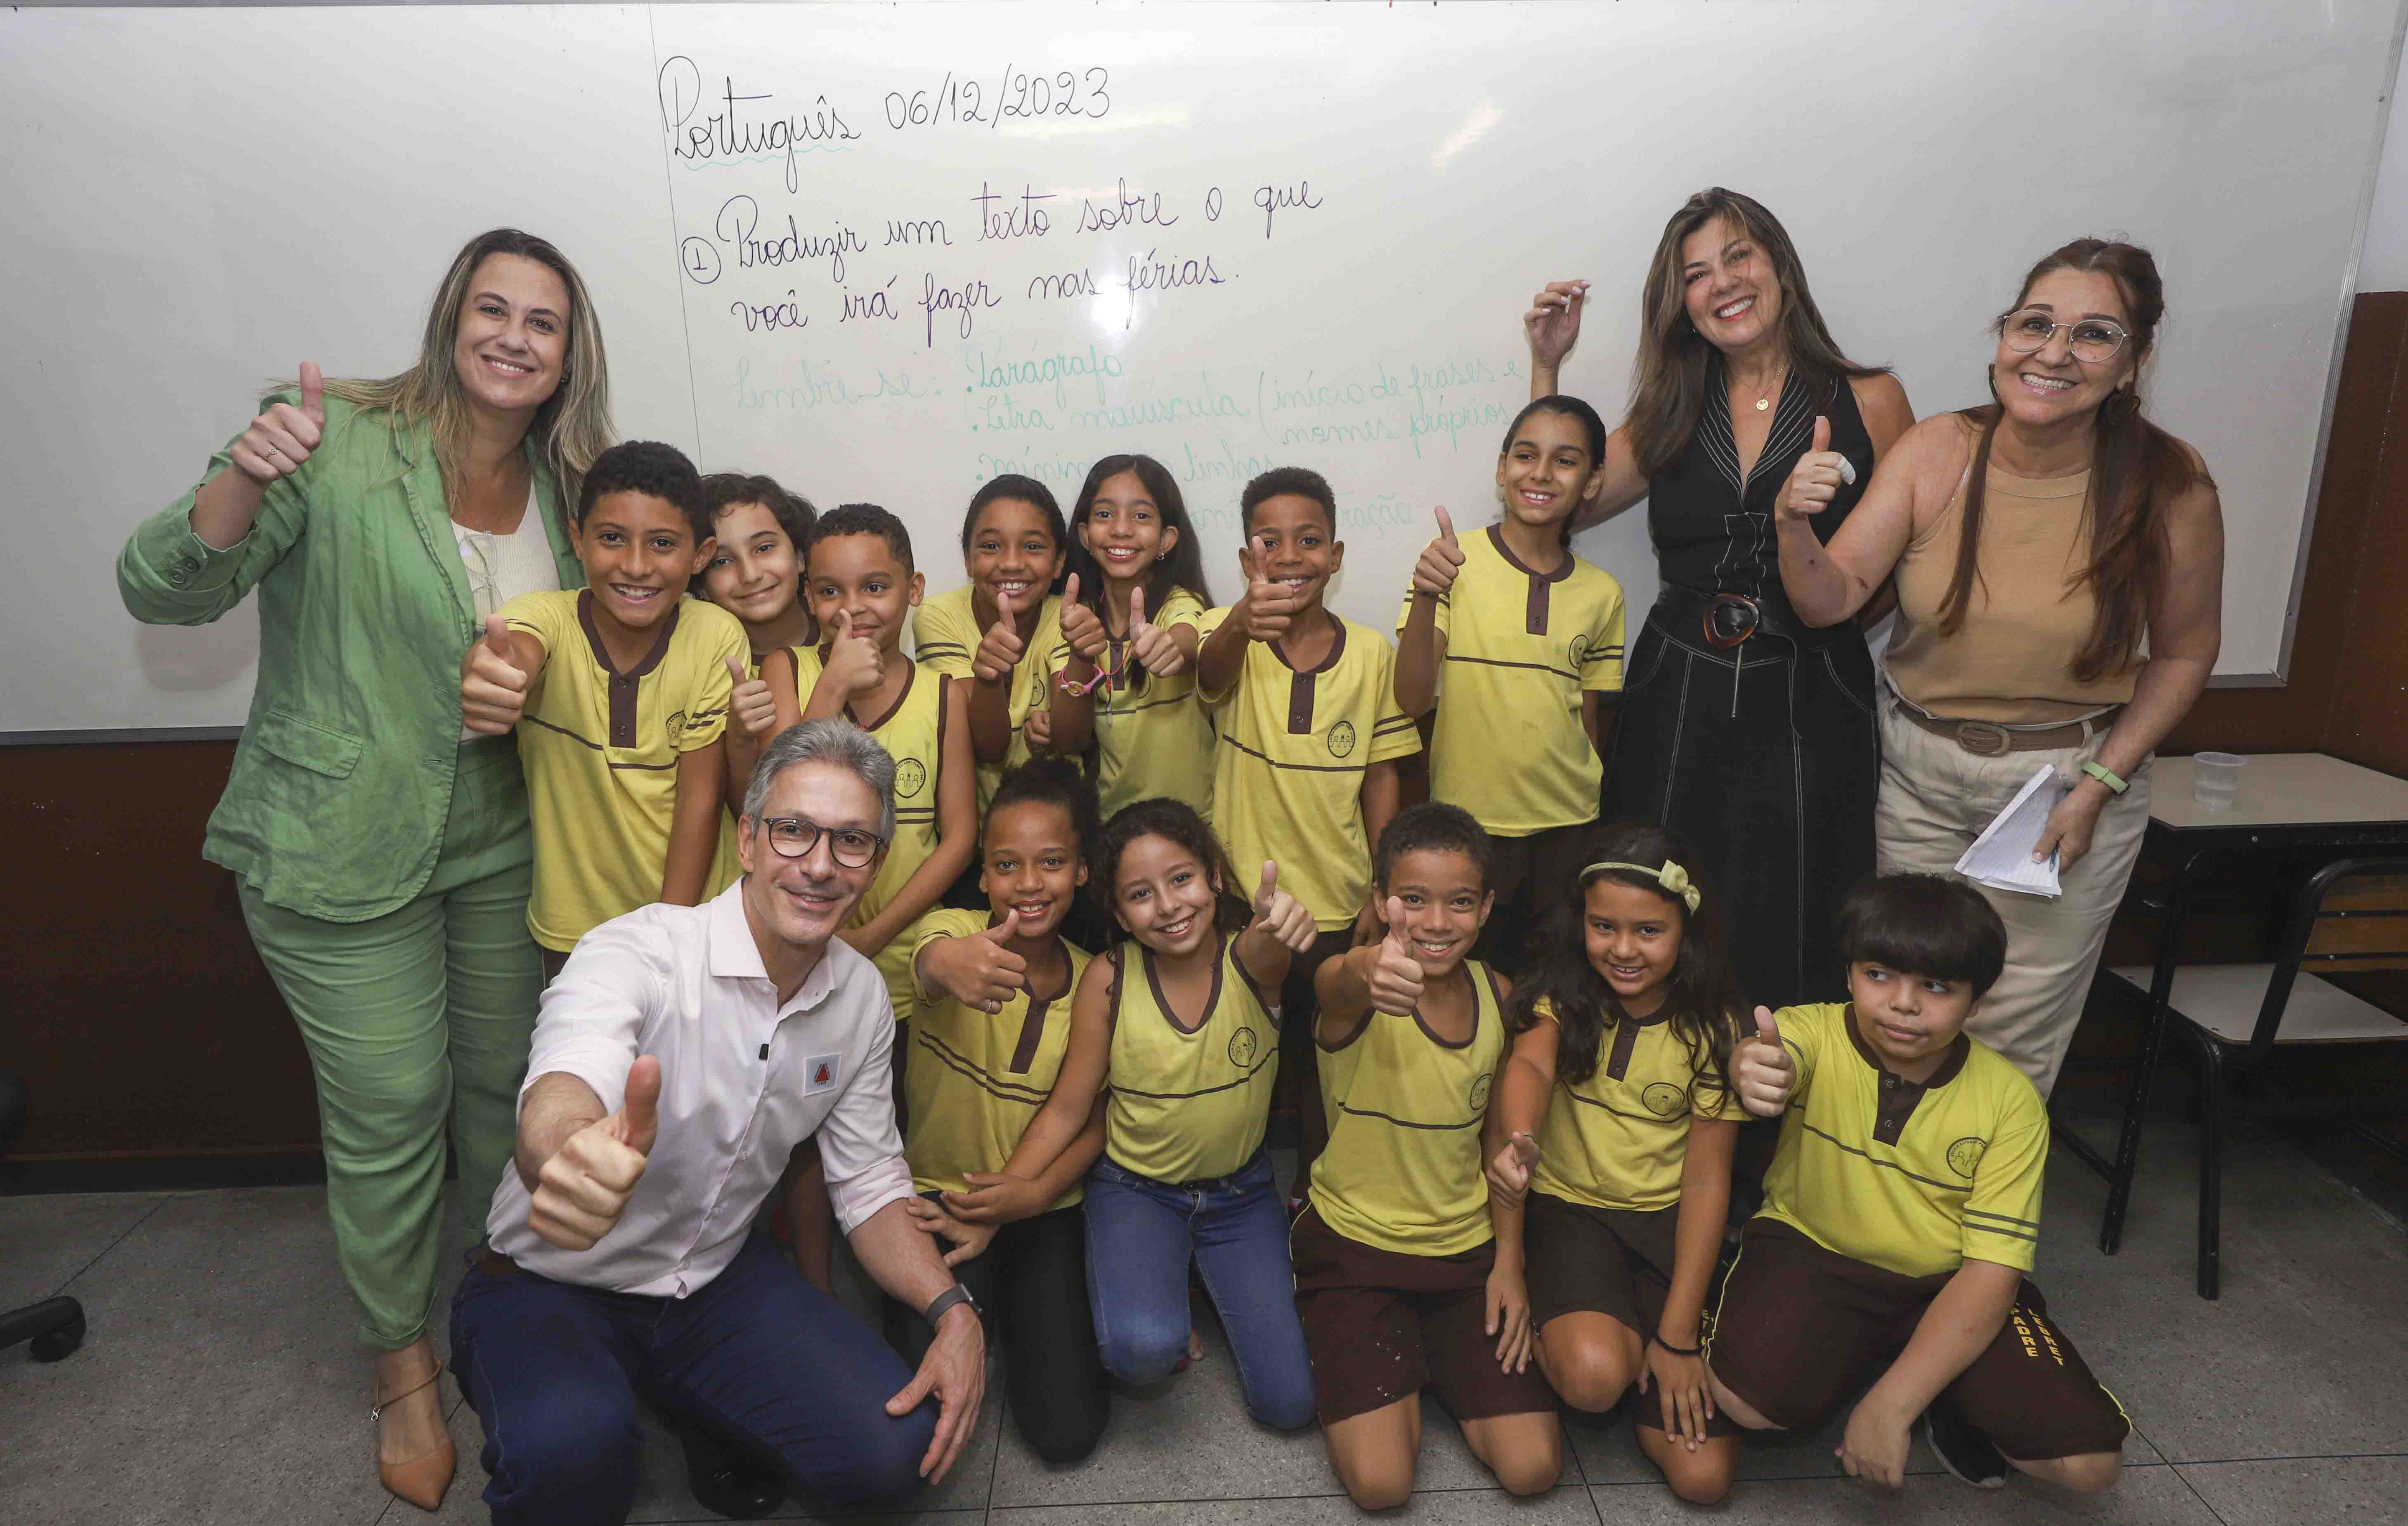 Português 06/12/2023
① Produzir um texto sobre o que
você irá fazer nas férias.
Lembre-se: . Parágrafo
. Letra maiúscula (início de frases e
nomes próprios
linhas
PADRE
LEBRET